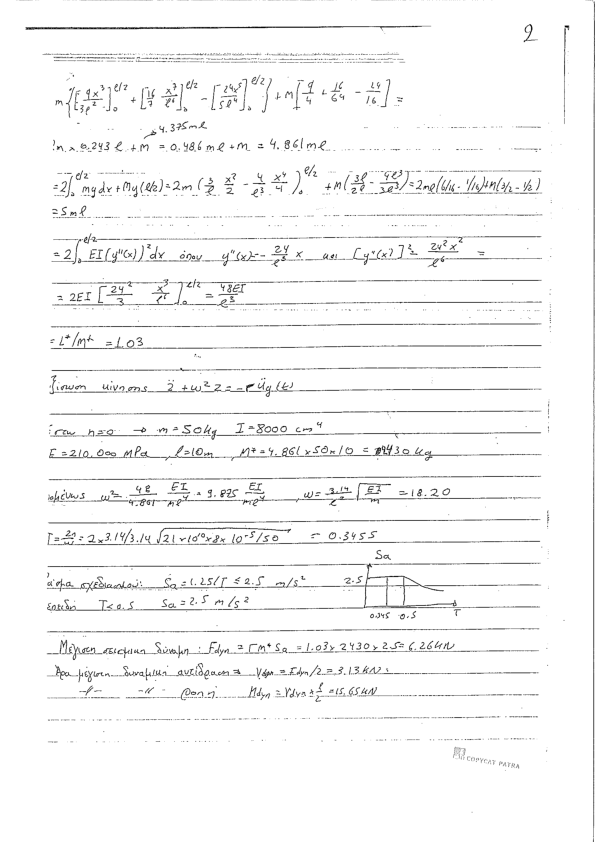 2
m{[9x³/3l²]₀^{l/2} + [16/7 x⁷/l⁶]₀^{l/2} - [24x⁵/5l⁴]₀^{l/2}} + M[9/4 + 16/64 - 24/16] =
4.375ml
m × 0.243l + M = 0.486ml + M = 4.861ml
= 2∫₀^{l/2} mydx + My(l/2) = 2m(3/l x²/2 - 4/l³ x⁴/4)₀^{l/2} + M(3l/2l - 4l³/8l³) = 2ml(6/16 - 1/16) + M(3/2 - 1/2)
= 5ml
= 2∫₀^{l/2} EI(y''(x))²dx όπου y''(x) = - 24/l³ x και [y''(x)]² = 24²x²/l⁶ =
= 2EI[24²/3 x³/l⁶]₀^{l/2} = 48EI/l³
= L*/M* = 1.03
ίσωση κίνησης z̈ + ω²z = -Γüg(t)
όταν n=0 → m=50kg I=8000 cm⁴
E=210.000 MPa, l=10m, M*=4.861×50×10 = 2430kg
ομένως ω² = 48/4.861 EI/ml⁴ = 9.875 EI/ml⁴, ω = 3.14/l² √EI/m = 18.20
T = 2π/ω = 2×3.14/3.14 √21×10¹⁰×8×10⁻⁵/50 = 0.3455
Sa
άσμα σχεδιασμού: Sa = 1.25/T ≤ 2.5 m/s²
2.5
επειδή T<0.5 Sa = 2.5 m/s²
0.345 0.5 T
Μέγιστη σεισμική δύναμη: Fdyn = Γm*Sa = 1.03×2430×2.5 = 6.26kN
Άρα μέγιστη δυναμική αντίδραση ⇒ Vdyn = Fdyn/2 = 3.13kN.
-//- -//- ροπή Mdyn = Vdyn × l/2 = 15.65kN
COPYCAT PATRA